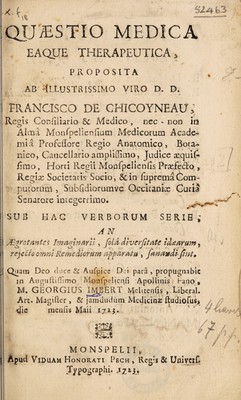 52463
QUÆSTIO MEDICA
EAQUE THERAPEUTICA,
PROPOSITA
AB ILLUSTRISSIMO VIRO D. D.
FRANCISCO DE CHICOYNEAU,
Regis Consiliario & Medico, nec-non in
Almâ Monspeliensium Medicorum Acade-
miâ Professore Regio Anatomico, Bota-
nico, Cancellario amplissimo, Judice æquis-
simo, Horti Regii Monspeliensis Præfecto,
Regiæ Societatis Socio, & in supremâ Com-
putorum, Subsidiorumve Occitaniæ Curiâ
Senatore integerrimo.
SUB HAC VERBORUM SERIE,
AN
Ægrotantes Imaginarii, solâ diversitate idearum,
rejecto omni Remediorum apparatu, sanandi sint.
Quam Deo duce & Auspice Dei parâ, propugnabit
in Augustissimo Monspeliensis Apolinis Fano,
M. GEORGIUS IMBERT Melitensis, Liberal.
Art. Magister, & jamdudum Medicinæ studiosus,
die mensis Maii 1723.
MONSPELII,
Apud VIDUAM HONORATI PECH, Regis & Univers.
Typographi. 1723.